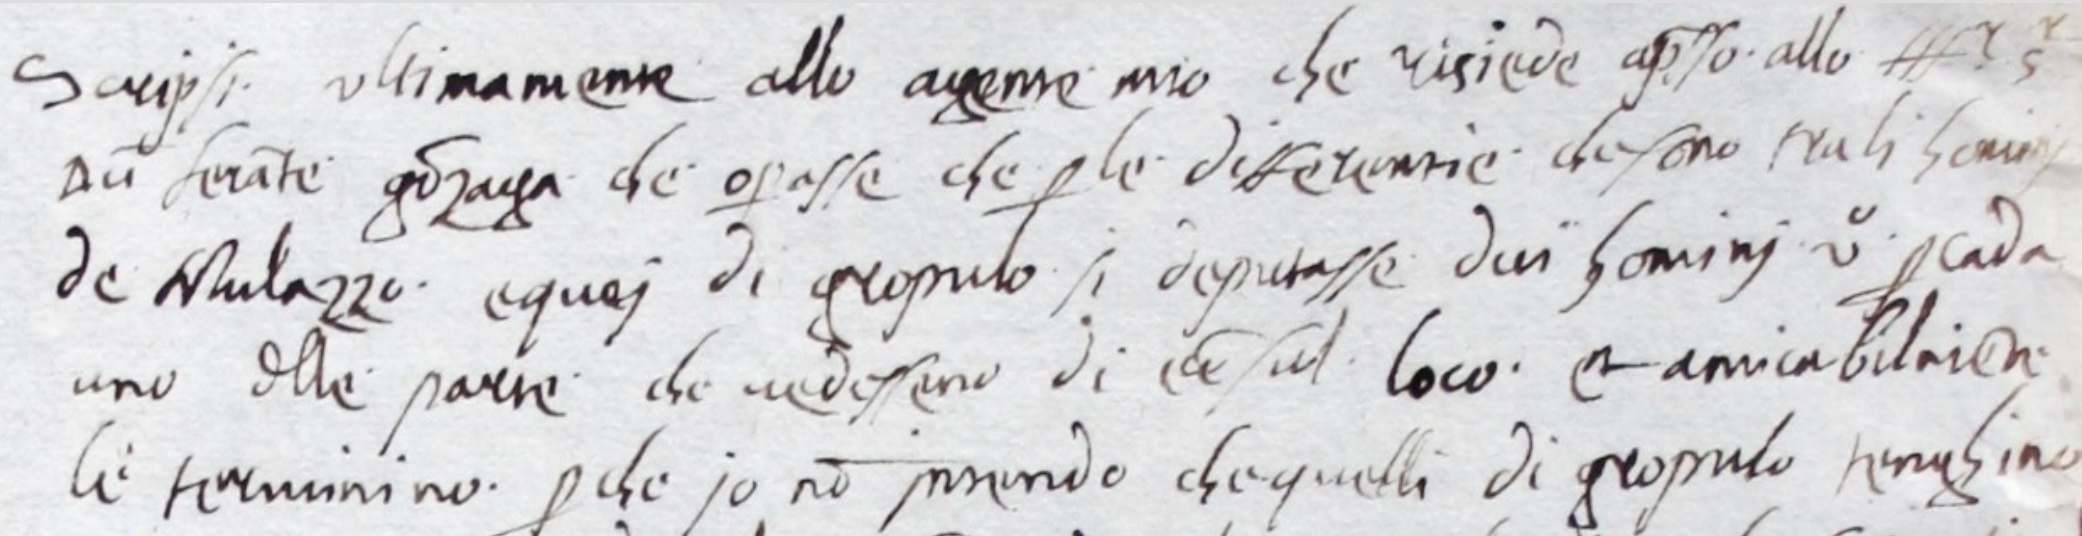 Scripsi ultimamente allo agente mio che risiede apſſo allo Ill.r S.r
Dū ferāte gōzaga che opasse che p le differentie che sono tra li homini
de Mulazzo equej di gropulo si deputasse dui hominj v̄ p cada
uno dlle parte che uedesseno di eē sul loco et amicabilmēte
le terminino p che jo nō intendo che quelli di gropulo tenghino